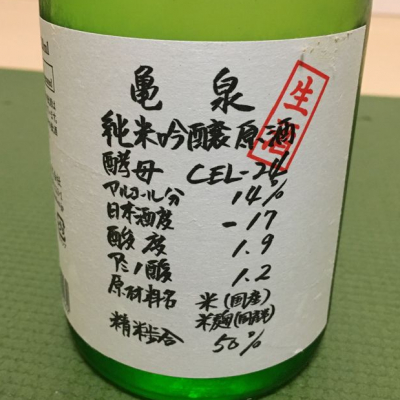 亀泉
純米吟醸原酒
生酒
酵母 CEL-24
アルコール分 14%
日本酒度 -17
酸度 1.9
アミノ酸 1.2
原材料名 米(国産)
米麹(国産米)
精米歩合 50%